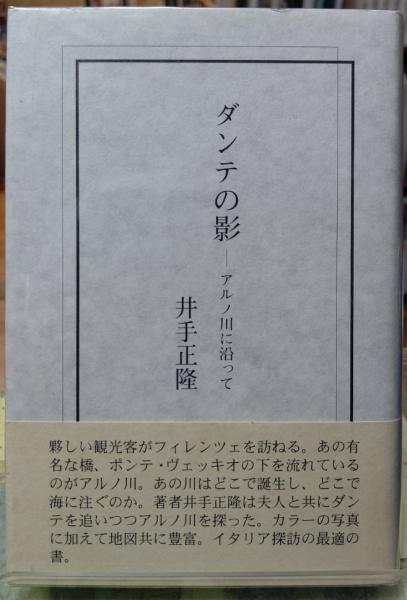 ダンテの影
―アルノ川に沿って
井手正隆
夥しい観光客がフィレンツェを訪ねる。あの有
名な橋、ポンテ・ヴェッキオの下を流れている
のがアルノ川。あの川はどこで誕生し、どこで
海に注ぐのか。著者井手正隆は夫人と共にダン
テを追いつつアルノ川を探った。カラーの写真
に加えて地図共に豊富。イタリア探訪の最適の
書。